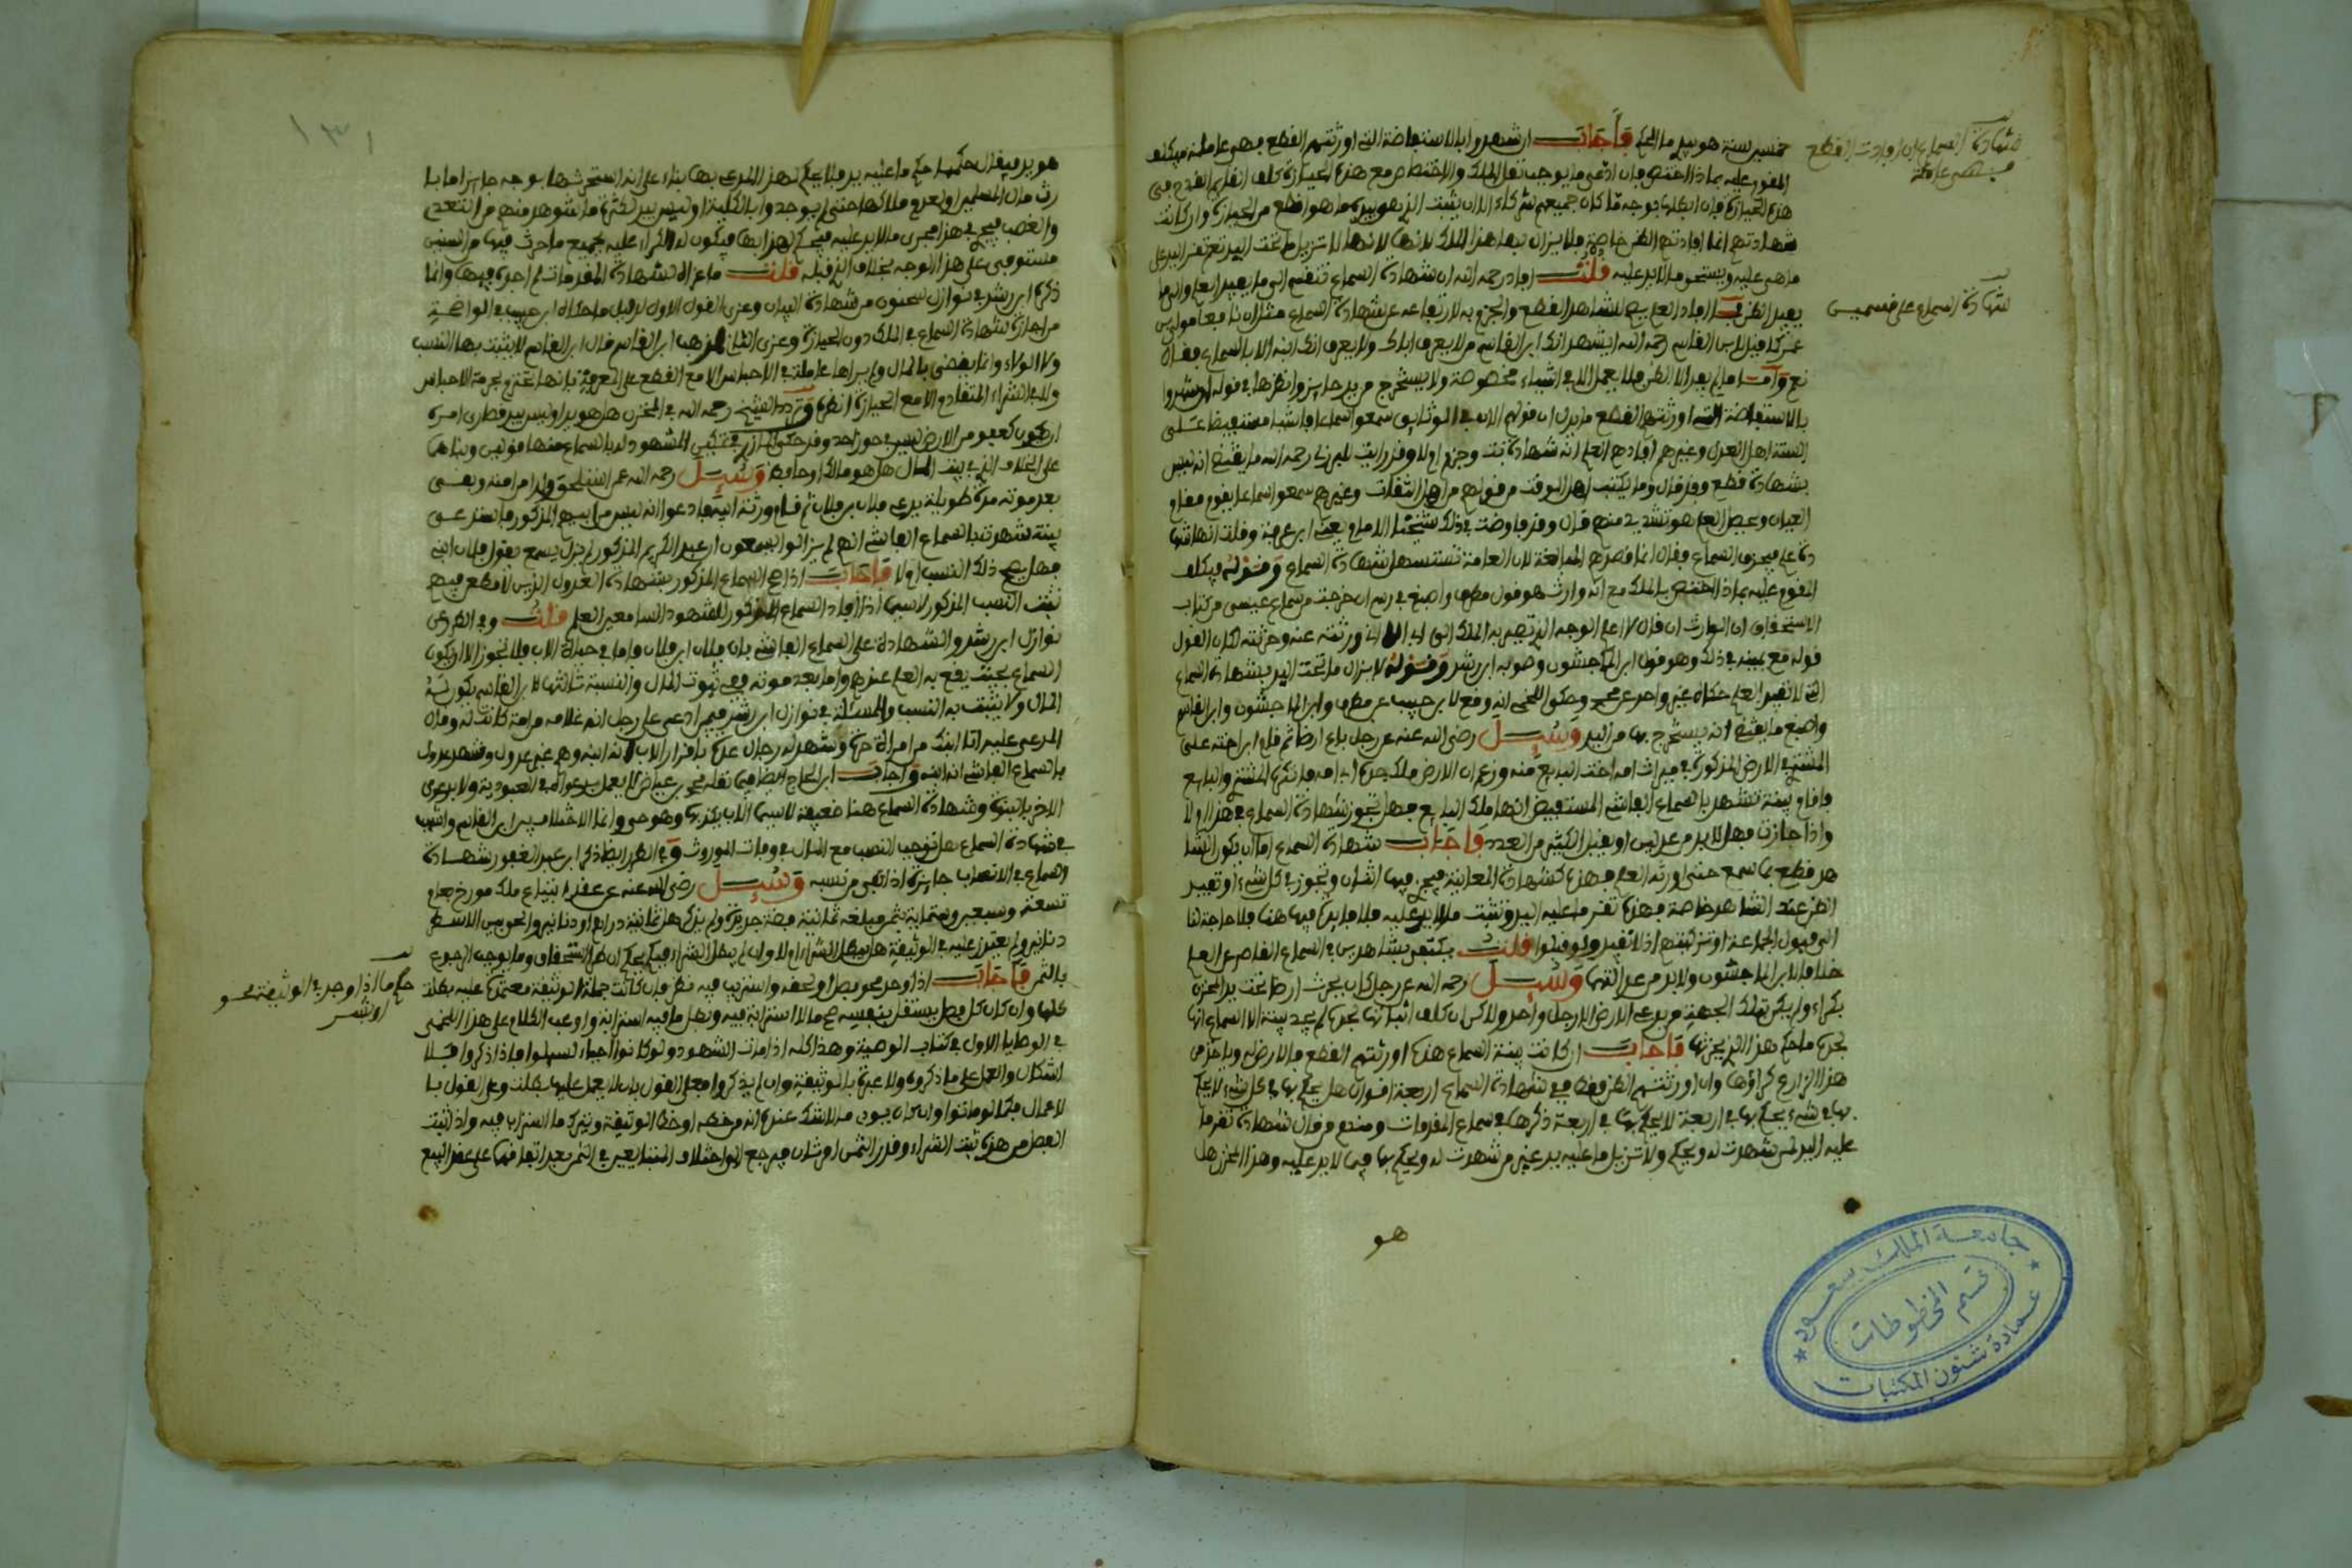 خمسين سنة هو بيده ما الحكم فأجاب ان شهدوا بالاستفاضة التي اورثتهم القطع فهي عاملة فيكلف
المقوم عليه بماذا اختص فان ادعى ما يوجب نقل الملك والاختصاص مع هذه الحيازة كلف
هذه الحيازة فان ابطلها بوجه ما كان جميعهم شركاء الا ان يثبت الذي هو بيده ما هو اقطع من الحيازة وان كانت
شهادتهم انما افادتهم الظن خاصة فلا يزال بها هذا الملك لانها لا تزيل ما تحت اليد نعم تقر اليد على
ما هي عليه ويستحق ما لا يد عليه قلت افاد رحمه الله ان شهادة السماع تنقسم الى ما يفيد العلم والى ما
يفيد الظن فما افاد العلم يصح للشاهد القطع والجزم به لارتفاعه عن شهادة السماع مثل ان نافعا مولى ابن
عمر كما قيل لابن القاسم رحمه الله ايشهد انك ابن القاسم من لا يعرف اباك ولا يعرف انك ابنه الا بالسماع فقال
نعم واما ما لم يفد الا الظن فلا يعمل الا في اشياء مخصوصة ولا يستخرج من يد حايز وانظر هل في قوله ان شهدوا
بالاستفاضة التي اورثتهم القطع ما يدل ان قولهم الان في الوثايق سمعوا سماعا فاشيا مستفيضا على
السنة اهل العدل وغيرهم افادهم العلم انه شهادة بت وجزم ام لا وقد رايت للبرزلي رحمه الله ما يقتضي انه ليس
بشهادة قطع وقد قال وما يكتب اهل الوقت من قولهم من اهل الثقات وغيرهم سمعوا سماعا يقوم مقام
العيان ويحصل العلم هو تشديد منهم قال وقد فاوضت في ذلك شيخنا الامام يعني ابن عرفة وقلت انها شها
دة علم فيجزي السماع فقال انما قصدهم المبالغة لان العامة تستسهل شهادة السماع وقوله فيكلف
المقوم عليه بماذا اختص بالملك مع انه وارث هو قول مطرف واصبغ في رسم ان خرجت من سماع عيسى من كتاب
الاستحقاق ان الوارث ان قال لا اعلم الوجه الذي تصير به الملك الى ابي الا اني ورثته عنه وحزته لكان القول
قوله مع يمينه في ذلك وهو قول ابن الماجشون وصوبه ابن رشد وقوله لا يزال ما تحت اليد بشهادة السماع
التي لا تفيد العلم حكاه غير واحد عن محمد وحكى اللخمي انه وقع لابن حبيب عن مطرف وابن الماجشون وابن القاسم
واصبغ ما يقتضي انه يستخرج بها من اليد وسيل رضي الله عنه عن رجل باع ارضا ثم قام ابن اخته على
المشتري في الارض المذكورة في ميراث امه اخت البايع منه وزعم ان الارض ملك جده ابي امه فانكره المشتري والبايع
فاقام بينة تشهد بالسماع الفاشي المستفيض انها ملك البايع فهل تجوز شهادة السماع في هذا ام لا
واذا جازت فهل لا بد من عدلين او يقبل الكثير من العدد فأجاب شهادة السماع اما ان يكون الشا
هد قطع بما سمع حتى اورثه العلم فهذه كشهادة المعاينة فيجزي فيها اثنان وتجوز في كل شيء او تفيد
الظن عند الشاهد خاصة فهذه تقر ما عليه اليد وتثبت ما لا يد عليه فلا فايدة فيها هنا فلا حاجة لنا
الى قبول الجماعة او تزكيتهم اذ لا تفيد ولو قبلوا قلت يكتفى بشاهدين في السماع القاصر عن العلم
خلافا لابن الماجشون ولا بد من عدالتهما وسيل رحمه الله عن رجل كان يحرث ارضا تحت يد المخزن
بكراء ولم يكن بتلك الجهة من يدعي الارض الا رجل واحد ولاكن ان كلف اثباتها لجده لم يجد بينة الا السماع انها
لجده ما حكم هذا الذي يحرثها فأجاب ان كانت بينة السماع هذه اورثتهم القطع فالارض له وياخذ من
هذا الزارع كراءها وان اورثتهم الظن فقط ففي شهادة السماع اربعة اقوال هل يحكم بها في كل شيء لا يحكم
بها في شيء يحكم بها في اربعة لا يحكم بها في اربعة ذكرها في سماع المقدمات وعندهم من قال شهادة تقر ما
عليه اليد لمن شهدت له ويحكم ولا تزيل ما عليه يد غير من شهدت له ويحكم بها فيما لا يد عليه وهذا المخزن هل
هو
شهادة السماع ان افادت القطع
فهي عاملة
شهادة السماع على قسمين
جامعة الملك سعود
قسم المخطوطات
عمادة شئون المكتبات
١٣١
هو يد فيقال حكمها حكم ما عليه يد فلا يحكم لهذا المدعي بها بناء على انه استحرثها بوجه جايز اما با
رث مال المسلمين او لعدم ملاكها حتى لم يوجدوا بالكلية او ليس بيد لكثرة ما شوهد منهم من التعدي
والغصب فيجري هذا مجرى ما لا يد عليه فيحكم لهذا بها فيكون له الكراء عليه بجميع ما حرث فيها من السنين
مستوفى على هذا الوجه بخلاف الذي قبله قلت ما عزاه لشهادة المقدمات لم اجده فيها وانما
ذكره ابن رشد في نوازل سحنون من شهادة البيان وعزى القول الاول لدليل ما حكاه ابن حبيب في الواضحة
من اجازة شهادة السماع في الملك دون الحيازة وعزى الثاني لمذهب ابن القاسم قال ابن القاسم لا يثبت بها النسب
ولا الولاء وانما يقضى بالمال ولم يراها عاملة في الاحباس الا مع القطع على المعرفة بانها تحترم بحرمة الاحباس
ولا في الشراء المتقادم الا مع الحيازة انظره وتردد الشيخ رحمه الله في المخزن هل هو يد او ليس بيد
على الخلاف الذي في بيت المال هل هو مالك او حافظ وسيل رحمه الله عمن استلحق ولدا من امته وبقي
بعد موته مدة طويلة يدعى فلان بن فلان ثم قام ورثة ابيه فادعوا انه ليس من ابيهم المذكور فاستدعى
بينة شهدت بالسماع الفاشي انهم لم يزالوا يسمعون ان عبد الكريم المذكور لم يزل يسمع يقول فلان ابني
فهل يصح ذلك النسب ام لا فأجاب اذا صح السماع المذكور بشهادة العدول الذين لا مطعن فيهم
يثبت النسب المذكور لا سيما اذا افاد السماع المذكور للشهود السامعين العلم قلت وفي الطرر عن
نوازل ابن رشد والشهادة على السماع الفاشي بان فلان ابن فلان واما في حياة الاب فلا تجوز الا ان يكون
السماع بحيث يقع به العلم عندهم واما بعد موته ففي ثبوت المال والنسبة ثالثها لابن القاسم يكون له
المال ولا يثبت به النسب والمسئلة في نوازل ابن رشد فيمن ادعى على رجل انه غلامه من امة كانت له وقال
المدعى عليه انا ابنك من امراة حرة وشهد له رجال عدة باقرار الاب انه ابنه وهم غير عدول وشهد عدول
بالسماع الفاشي انه ابنه وأجاب ابن الحاج ايضا فيما نقله محمد بن عياض لا يعمل بدعواه في العبودية ولا بدعوى
الاخر بالبنوة وشهادة السماع هنا ضعيفة لا سيما الاب يكذبها وهو حي وانما الاختلاف بين ابن القاسم واشهب
في شهادة السماع هل توجب النسب مع المال في وفات الموروث وفي الطرر ايضا ذكر ابن عبد الغفور شهادة
السماع في الانساب جايزة اذا نفي من نسبه وسيل رضي الله عنه عن عقد ابتياع ملك مورخ بعام
تسعة وسبعين وستماية بثمن مبلغه ثمانية فضة جديدة ولم يذكر هل ثمانية دراهم او دنانير والحق بين الاسطر
دنانير ولم يعتذر عليه في الوثيقة هل يبطل الشراء ام لا وان لم يبطل الشراء فبكم يحكم ان طرا استحقاق وما يوجب الرجوع
بالثمن فأجاب اذا وجد محو فصل او لحقه واستريب فيه نظر فان كانت جملة الوثيقة معتمدة عليه بطلت
كلها وان كان كل فصل يستقل بنفسه صح ما لا استرابة فيه وبطل ما فيه استرابة واوعب الكلام على هذا اللخمي
في الوصايا الاول في كتاب الوصية وهذا كله اذا مات الشهود ولو كانوا احياء لسيلوا فاذا ذكروا فلا
اشكال والعمل على ما ذكروه ولا عبرة بالوثيقة وان لم يذكروا فعلى القول بان لا يعمل عليها بطلت وعلى القول با
لاعمال فكما لو ماتوا
الفصل من هذه ثبت الشراء وقدر الثمن او شان فيرجع الى اختلاف المتبايعين في الثمن بعد اتفاقهما على عقد البيع
حكم ما اذا وجد في الوثيقة محو
او بشر